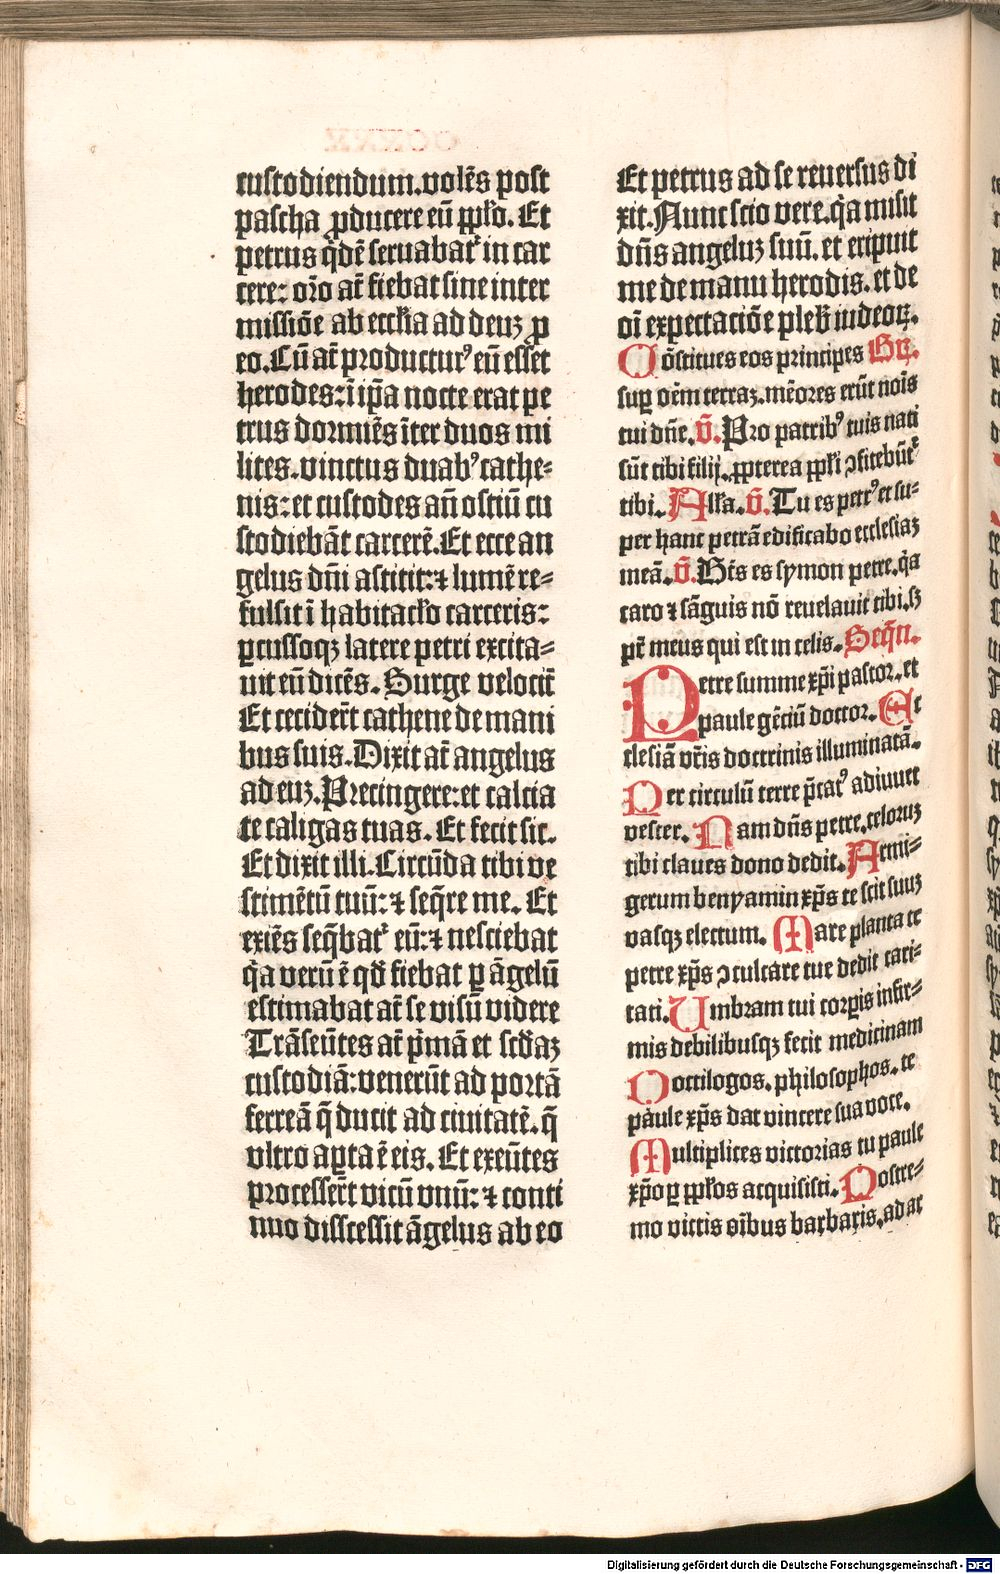 custodiendum. volēs post
pascha ꝓducere eū ppľo. Et
petrus q̇dē seruabat᷑ in car
cere: or̄o at̄ fiebat sine inter
missiōe ab eccľia ad deuȝ ꝓ
eo. Cū at̄ producturꝰ eū esset
herodes: ī ip̄a nocte erat pe
trus dormiēs īter duos mi
lites. vinctus duabꝰ cathe⸗
nis: et custodes an̄ ostiū cu
stodiebāt carcerē. Et ecce an
gelus dn̄i astitit: ⁊ lumē re⸗
fulsit ī habitacľo carceris:
ꝑcussoqȝ latere petri excita⸗
uit eū dicēs. Surge velocit̄
Et cecider̄t cathene de mani
bus suis. Dixit at̄ angelus
ad euȝ. Precingere: et calcia
te caligas tuas. Et fecit sic.
Et dixit illi. Circūda tibi ve
stimētū tuū: ⁊ seq̄re me. Et
exiēs seq̄bat᷑ eū: ⁊ nesciebat
q̇a verū ē qd̄ fiebat ꝑ āgelū
estimabat at̄ se visū videre
Trāseūtes at̄ p̄mā et scd̄aȝ
custodiā: venerūt ad portā
ferreā q̄ ducit ad ciuitatē. q̄
vltro aꝑta ē eis. Et exeūtes
processer̄t vicū vnū: ⁊ conti
nuo discessit āgelus ab eo
Et petrus ad se reuersus di
xit. Nunc scio vere. q̇a misit
dn̄s angeluȝ suū. et eripuit
me de manu herodis. et de
oī expectaciōe pleb̄ iudeoꝝ.
Cōstitues eos principes Gꝝ.
suꝑ oēm terraȝ. mēores erūt nois̄
tui dn̄e. v̄. Pro patribꝰ tuis nati
sūt tibi filij. ꝓpterea ppľi ꝯfitebūt᷑
tibi. Alľa. v̄. Tu es petrꝰ et su⸗
per hanc petrā edificabo ecclesiaȝ
meā. v̄. Bt̄s es symon petre. q̇a
caro ⁊ sāguis nō reuelauit tibi. sȝ
pr̄ meus qui est in celis. Seq̄n.
Petre summe xp̄i pastor. et
paule gēciū doctor. Ec
clesiā vr̄is doctrinis illuminatā.
Per circulū terre p̄catꝰ adiuuet
vester. Nam dn̄s petre. celoruȝ
tibi claues dono dedit. Armi⸗
gerum benyamin xp̄s te scit suuȝ
vasqȝ electum. Mare planta te
petre xp̄s ꝯculcare tue dedit cari⸗
tati. Umbram tui corꝑis infir⸗
mis debilibusqȝ fecit medicinam
Doctilogos. philosophos. te
paule xp̄s dat vincere sua voce.
Multiplices victorias tu paule
xp̄o ꝑ ppľos acquisisti. Postre⸗
mo victis oībus barbaris. ad ar
Digitalisierung gefördert durch die Deutsche Forschungsgemeinschaft - DFG